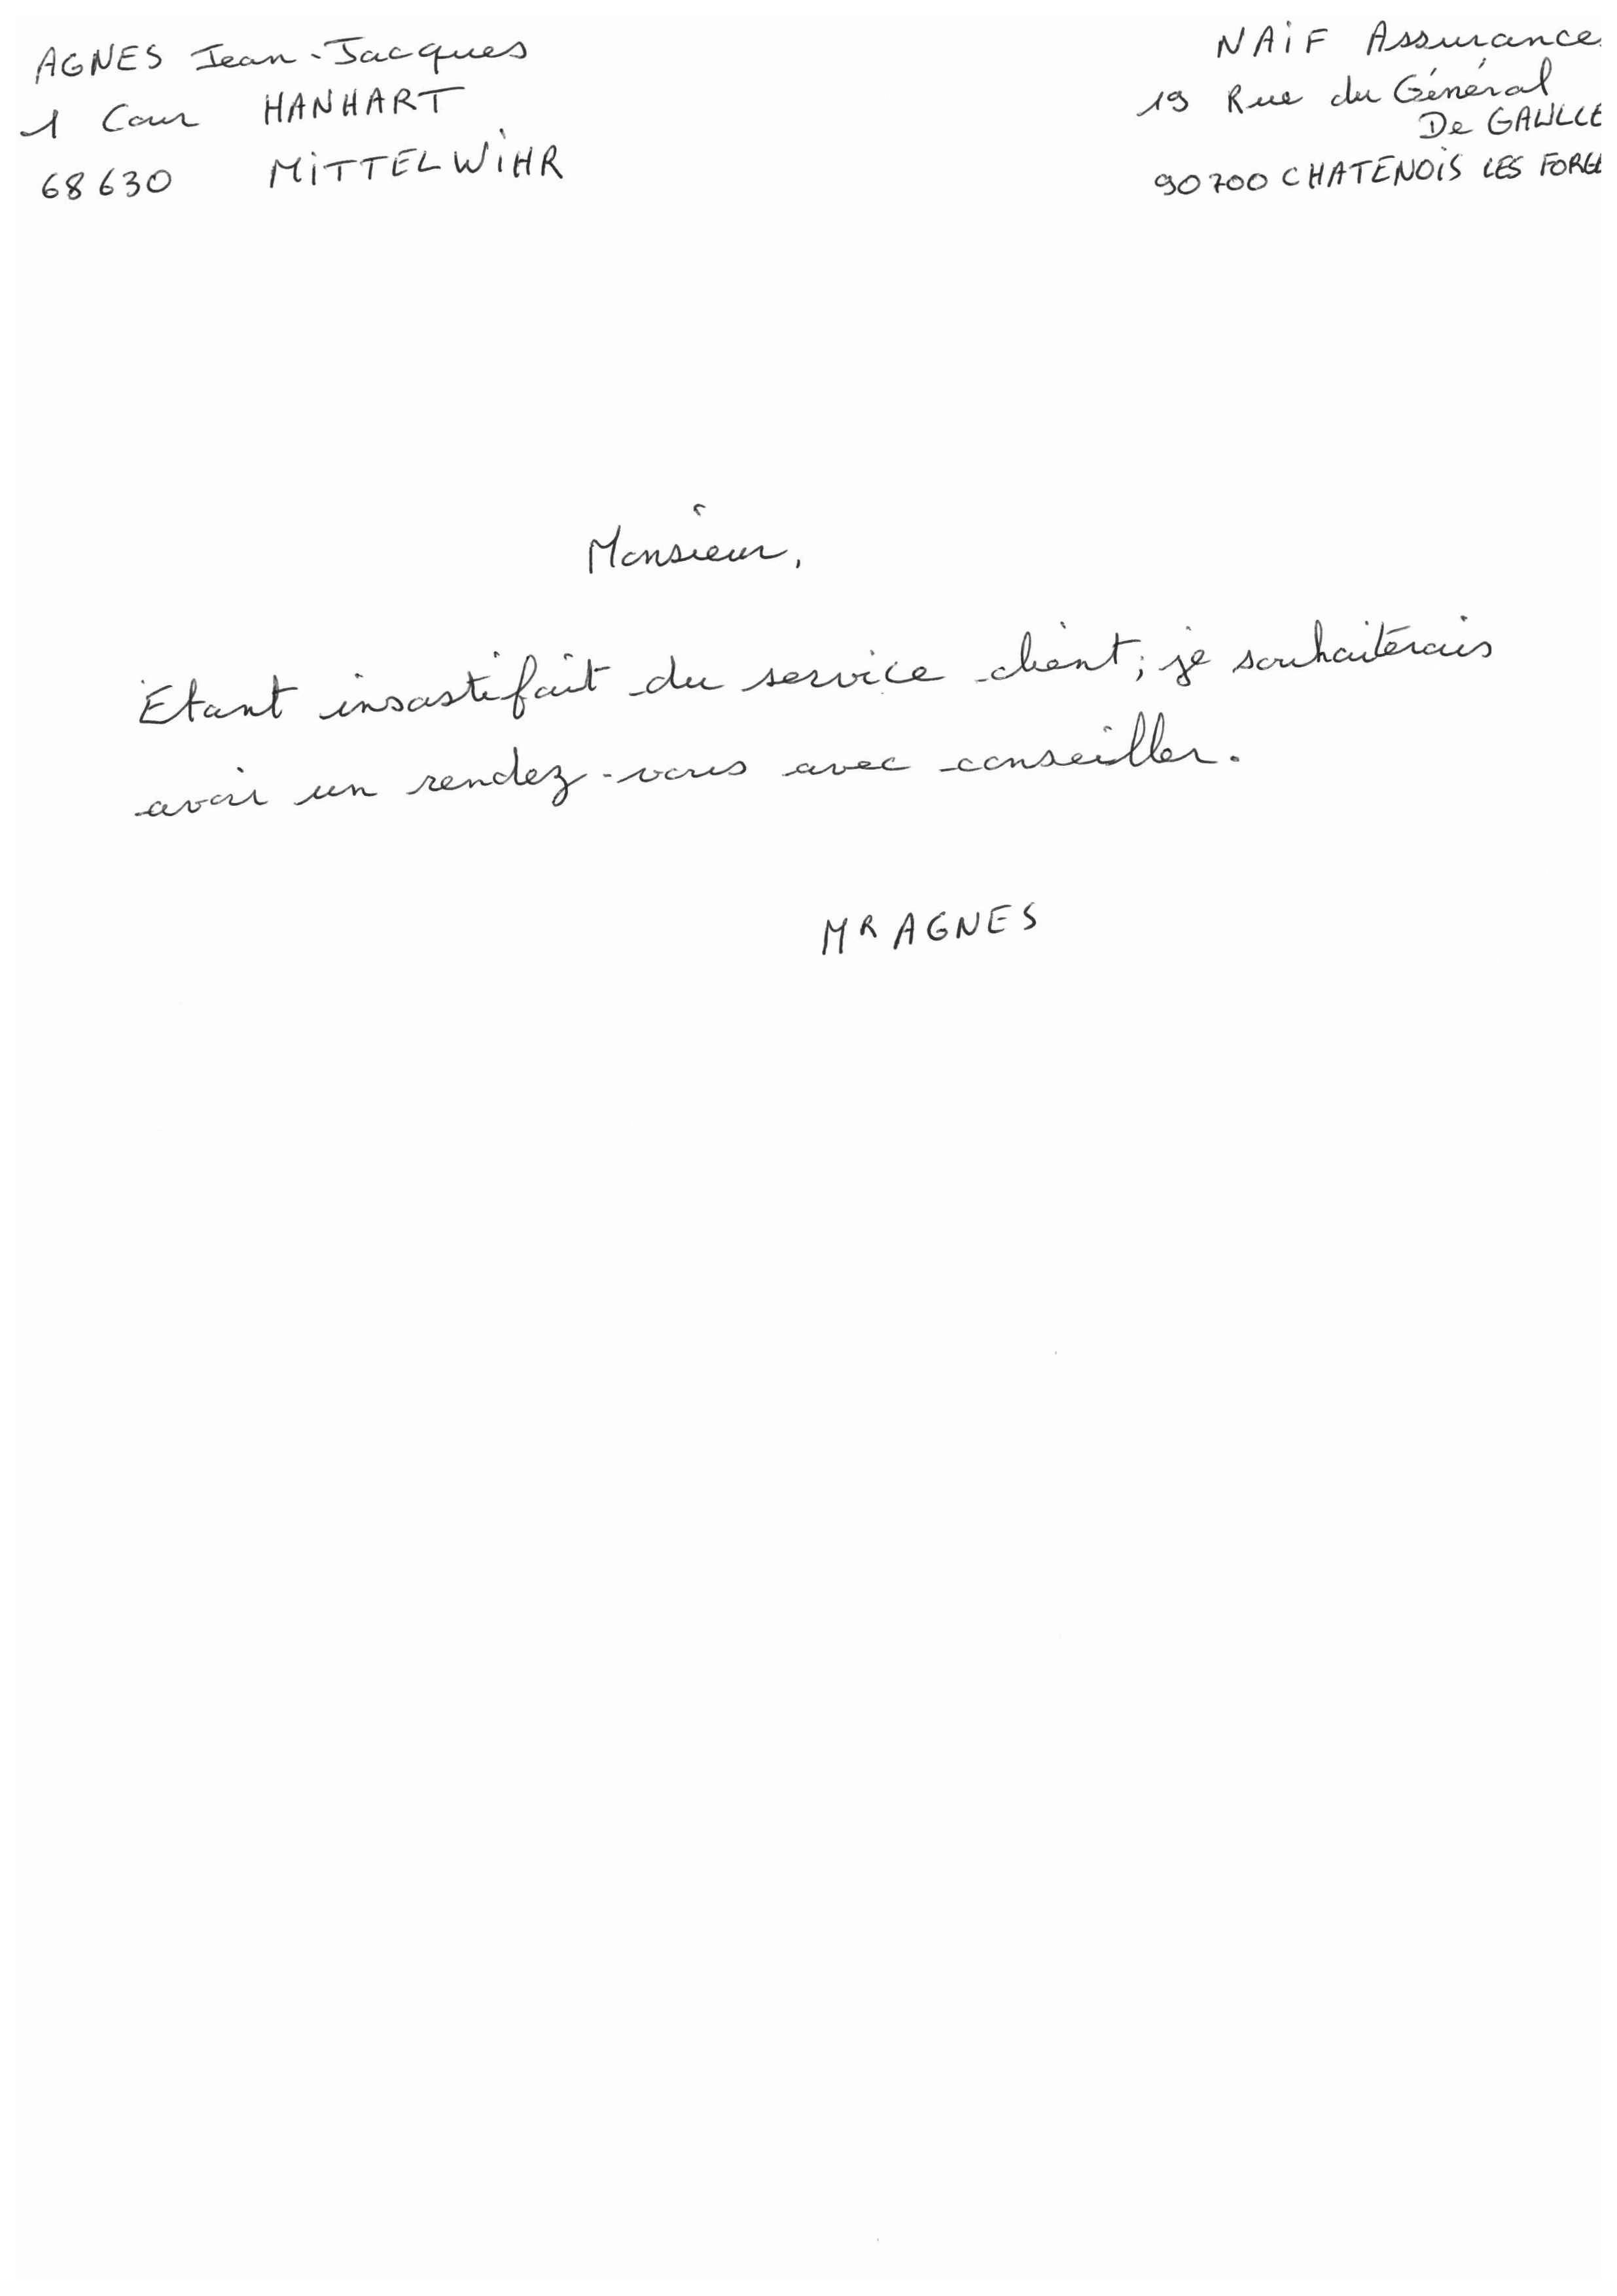 AGNES Jean-Jacques
1 Cour HANHART
68630 MiTTELWiHR
NAiF Assurance
19 Rue du Général
De GAULLE
90700 CHATENOiS LES FORGE
Monsieur,
Etant insastifait du service client; je souhaiterais
avoir un rendez-vous avec conseiller.
MR AGNES